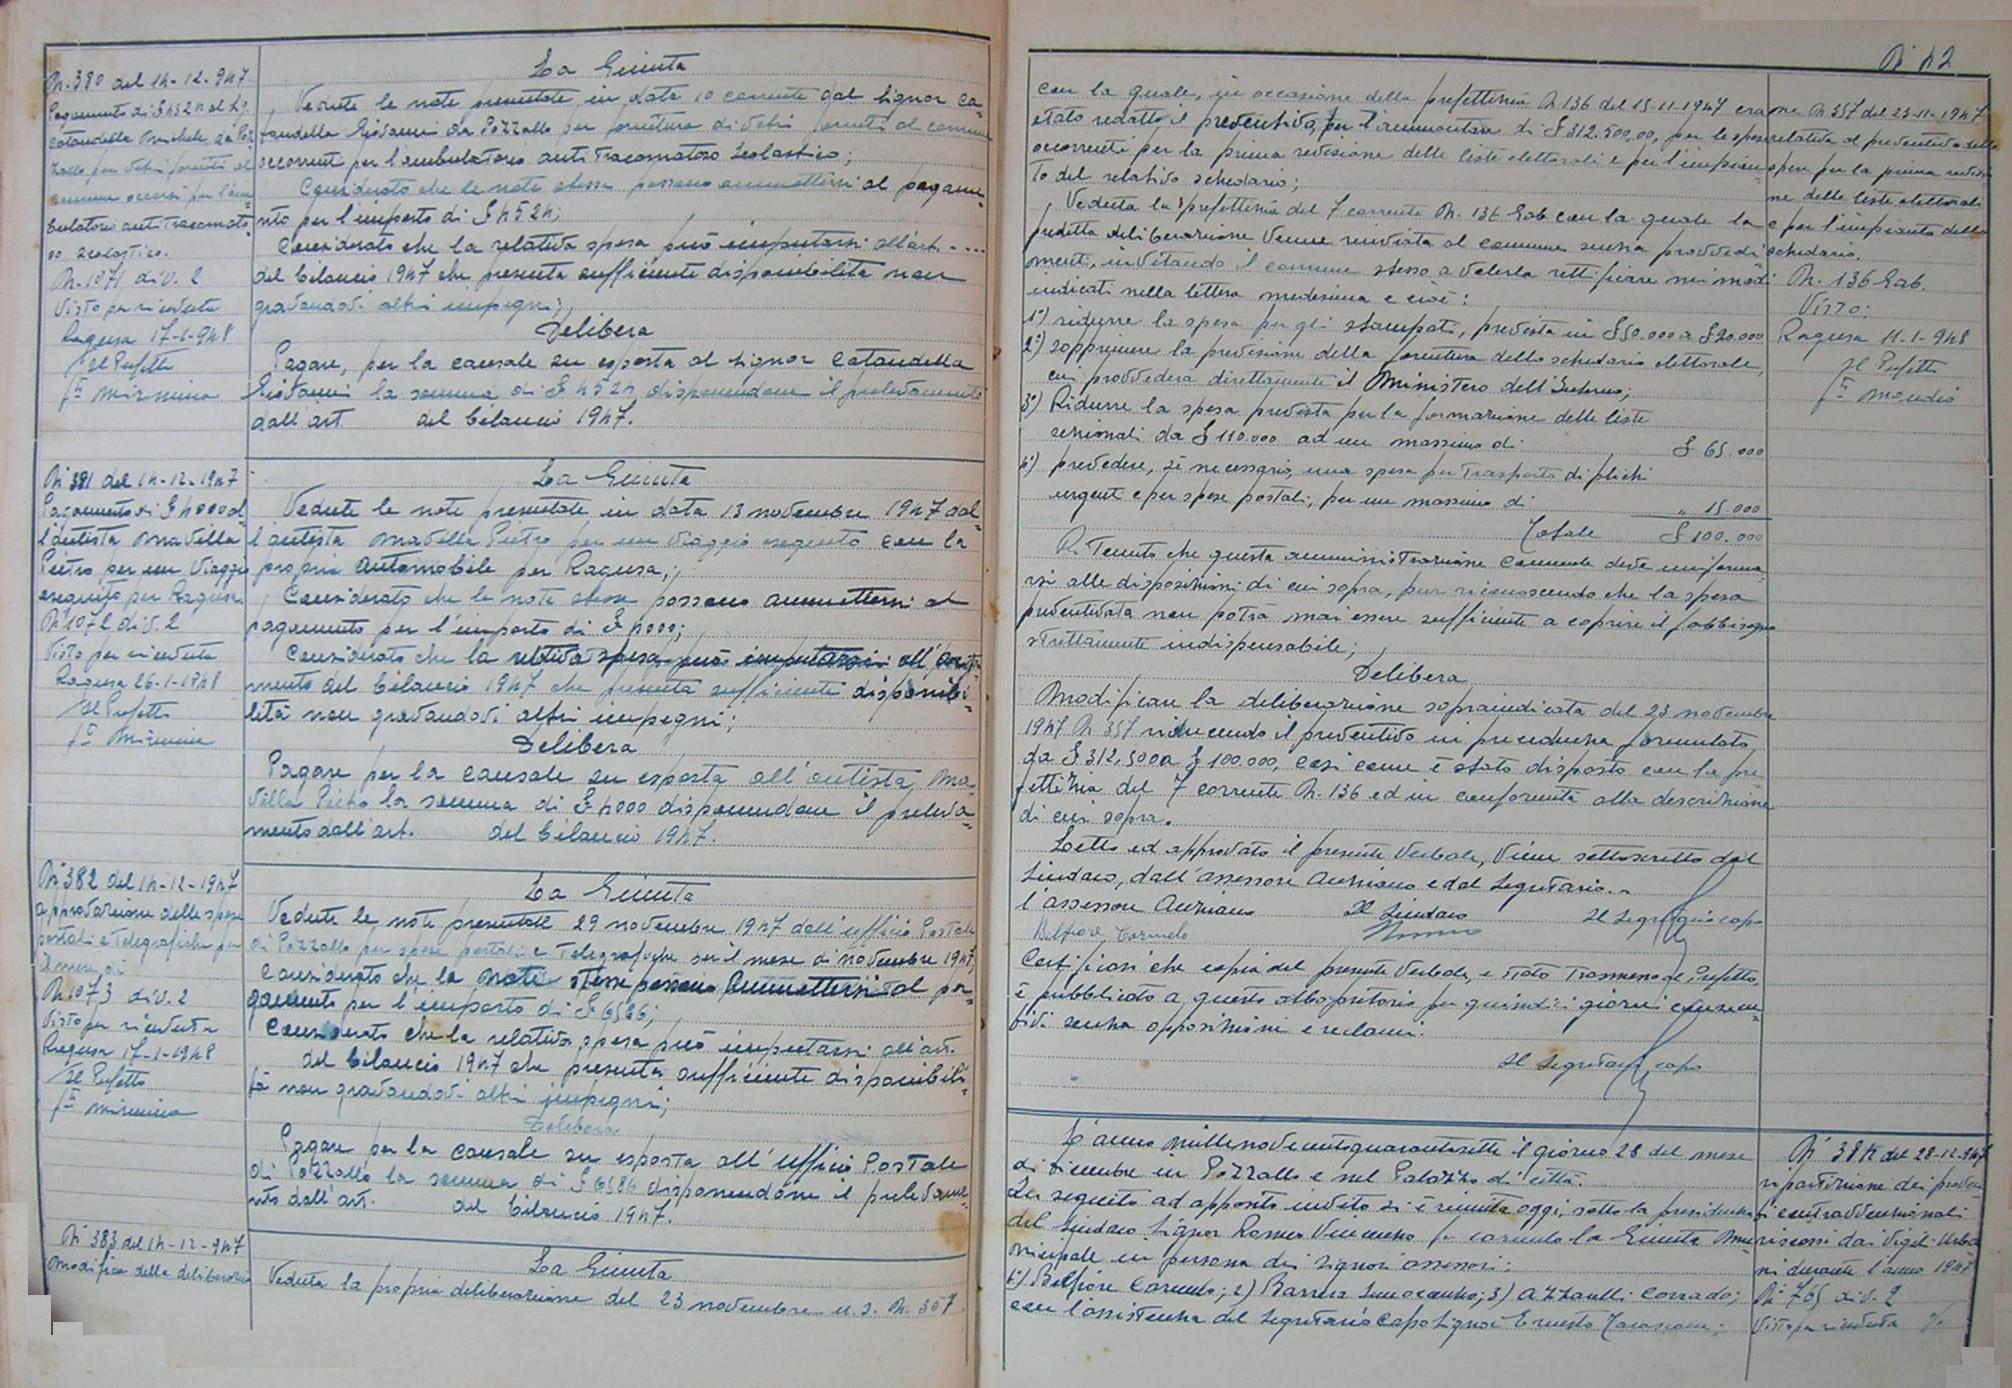 N. 380 del 14-12-947
Pagamento di £ 4524 al Sig.
Catandella Michele da Poz
zallo per vetri forniti al
comune occorsi per l'am
bulatorio anti Tracomato
so scolastico.
N. 1071 div. 2
Visto per ricevuta
Ragusa 17-1-948
Il Prefetto
f.to Mirmina
La Giunta
Vedute le note presentate in data 10 corrente dal Signor Ca=
tandella Giovanni da Pozzallo per fornitura di vetri forniti al comune
occorrenti per l'ambulatorio anti Tracomatoso Scolastico;
Considerato che le note stesse possono ammettersi al pagame
nto per l'importo di £ 4524;
Considerato che la relativa spesa può imputarsi all'art. ....
del bilancio 1947 che presenta sufficiente disponibilità non
gravandovi altri impegni;
Delibera
Pagare, per la causale su esposta al Signor Catandella
Giovanni la somma di £ 4524 disponendone il prelevamento
dall'art. del bilancio 1947.
N. 381 del 14-12-1947
Pagamento di £ 4000 al=
l'autista Mavilla
Pietro per un viaggio
eseguito per Ragusa.
N. 1072 div. 2
Visto per ricevuta
Ragusa 26-1-1948
Il Prefetto
f.to Mirmina
La Giunta
Vedute le note presentate in data 13 novembre 1947 dal=
l'autista Mavilla Pietro per un viaggio eseguito con la
propria automobile per Ragusa;
Considerato che le note stesse possono ammettersi al
pagamento per l'importo di £ 4000;
Considerato che la relativa spesa può imputarsi all'
mento del bilancio 1947 che presenta sufficiente disponibi=
lità non gravandovi altri impegni;
Delibera
Pagare per la causale su esposta all'autista Ma=
villa Pietro la somma di £ 4000 disponendone il preleva=
mento dall'art. del bilancio 1947.
N. 382 del 14-12-1947
approvazione delle spese
postali e Telegrafiche per
il mese di
N. 1073 div. 2
Visto per ricevuta
Ragusa 17-1-1948
Il Prefetto
f.to Mirmina
La Giunta
Vedute le note presentate 29 novembre 1947 dall'ufficio Postale
di Pozzallo per spese postali e Telegrafiche per il mese di novembre 1947;
Considerato che le note stesse possono ammettersi al pa=
gamento per l'importo di £ 6586;
Considerato che la relativa spesa può imputarsi all'art.
del bilancio 1947 che presenta sufficiente disponibili=
tà non gravandovi altri impegni;
Delibera
Pagare per la causale su esposta all'ufficio Postale
di Pozzallo la somma di £ 6586 disponendone il prelevame=
nto dall'art. del bilancio 1947.
N. 383 del 14-12-947
Modifica della deliberazio
La Giunta
Veduta la propria deliberazione del 23 novembre u.s. N. 357
N. 42
con la quale, in occasione della prefettizia N. 136 del 15-11-1947 era
stato redatto il preventivo, per l'ammontare di £ 312.500,00, per le spese
occorrenti per la prima revisione delle liste elettorali e per l'impian=
to del relativo schedario;
Veduta la prefettizia del 7 corrente N. 136 Gab con la quale la
predetta deliberazione venne rinviata al comune senza provvedi=
menti, invitando il comune stesso a volerla rettificare nei modi
indicati nella lettera medesima e cioè:
1°) ridurre la spesa per gli stampati, prevista in £ 50.000 a £ 20.000
2°) sopprimere la previsione della fornitura dello schedario elettorale,
cui provvederà direttamente il Ministero dell'Interno;
3°) Ridurre la spesa prevista per la formazione delle liste
sezionali da £ 110.000 ad un massimo di £ 65.000
4°) prevedere, se necessario, una spesa per trasporto di plichi
urgenti e per spese postali, per un massimo di " 15.000
Totale £ 100.000
Ritenuto che questa amministrazione Comunale deve uniforma=
rsi alle disposizioni di cui sopra, pur riconoscendo che la spesa
preventivata non potrà mai essere sufficiente a coprire il fabbisogno
strettamente indispensabile;
Delibera
Modificare la deliberazione sopraindicata del 23 novembre
1947 N. 357 riducendo il preventivo in precedenza formulato,
da £ 312.500 a £ 100.000, così come è stato disposto con la pre=
fettizia del 7 corrente N. 136 ed in conformità alla descrizione
di cui sopra.
Letto ed approvato il presente Verbale, viene sottoscritto dal
Sindaco, dall'assessore anziano e dal Segretario.
l'assessore Anziano Il Sindaco Il Segretario capo
Belfiore Carmelo
Certificasi che copia del presente Verbale, è stato Trasmesso al Prefetto,
è pubblicato a questo albo pretorio per quindici giorni consecu=
tivi senza opposizioni e reclami.
Il Segretario capo
ne N. 357 del 23-11-1947
relativa al preventivo delle
spese per la prima revisio
ne delle liste elettorali
e per l'impianto dello
schedario.
N. 136 Gab.
Visto:
Ragusa 11-1-948
Il Prefetto
f.to Mondio
L'anno millenovecentoquarantasette il giorno 28 del mese
di dicembre in Pozzallo e nel Palazzo di città.
In seguito ad apposito invito si è riunita oggi, sotto la presidenza
del Sindaco Signor Romeo Vincenzo fu Carmelo la Giunta Mu
nicipale in persona dei Signori assessori:
1°) Belfiore Carmelo; 2) Barrera Innocenzo; 3) Azzarelli Corrado;
con l'assistenza del Segretario Capo Signor Ernesto
N. 384 del 28-12-947
ripartizione dei proven
ti contravvenzionali
riscossi dai Vigili Urba
ni durante l'anno 1947
N. 765 div. 2
Visto per ricevuta